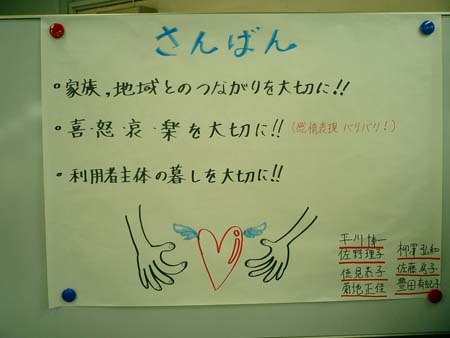 さんばん
・家族,地域とのつながりを大切に!!
・喜・怒・哀・楽を大切に!!(感情表現バリバリ!)
・利用者主体の暮しを大切に!!
平川博一
佐野理子 柳澤弘和
佐藤
菊地正佳 豊田有紀子